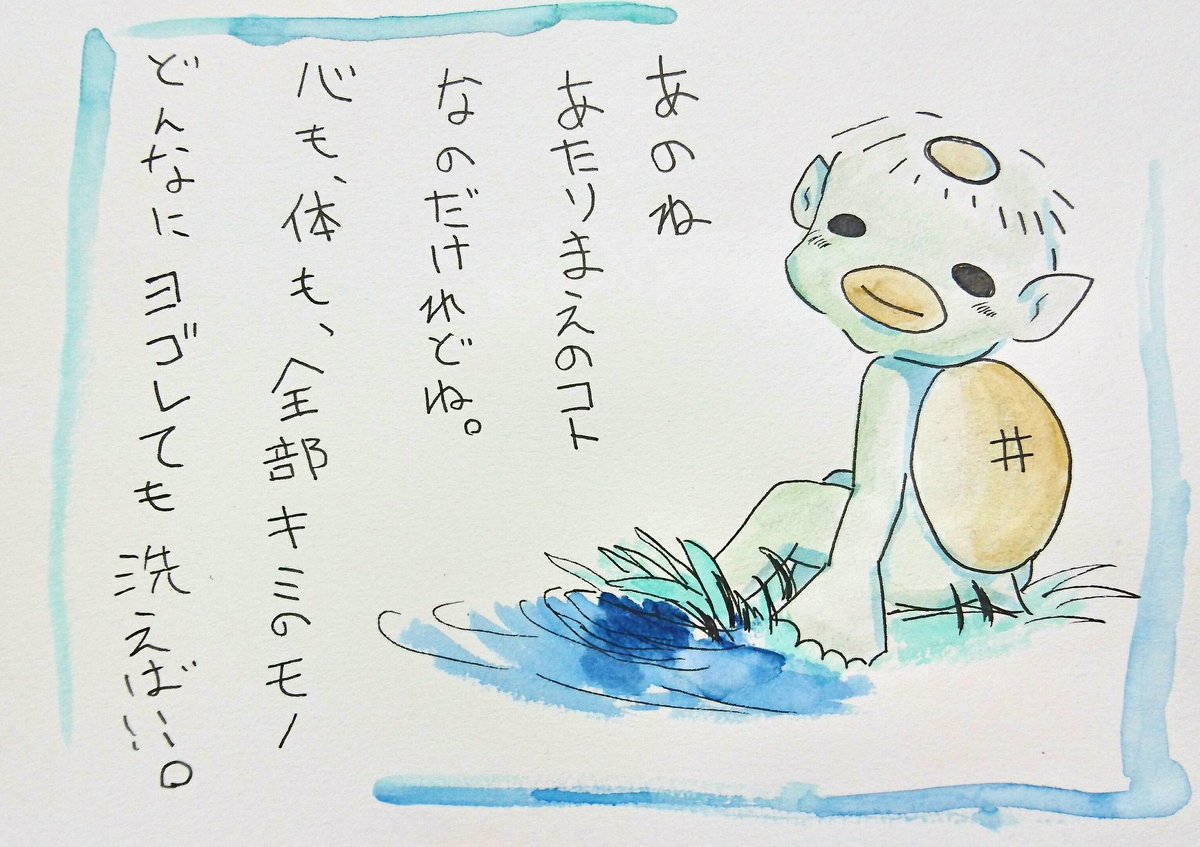 あのね
あたりまえのコト
なのだけれどね。
心も、体も、全部キミのモノ
どんなにヨゴレても洗えばいい。
井